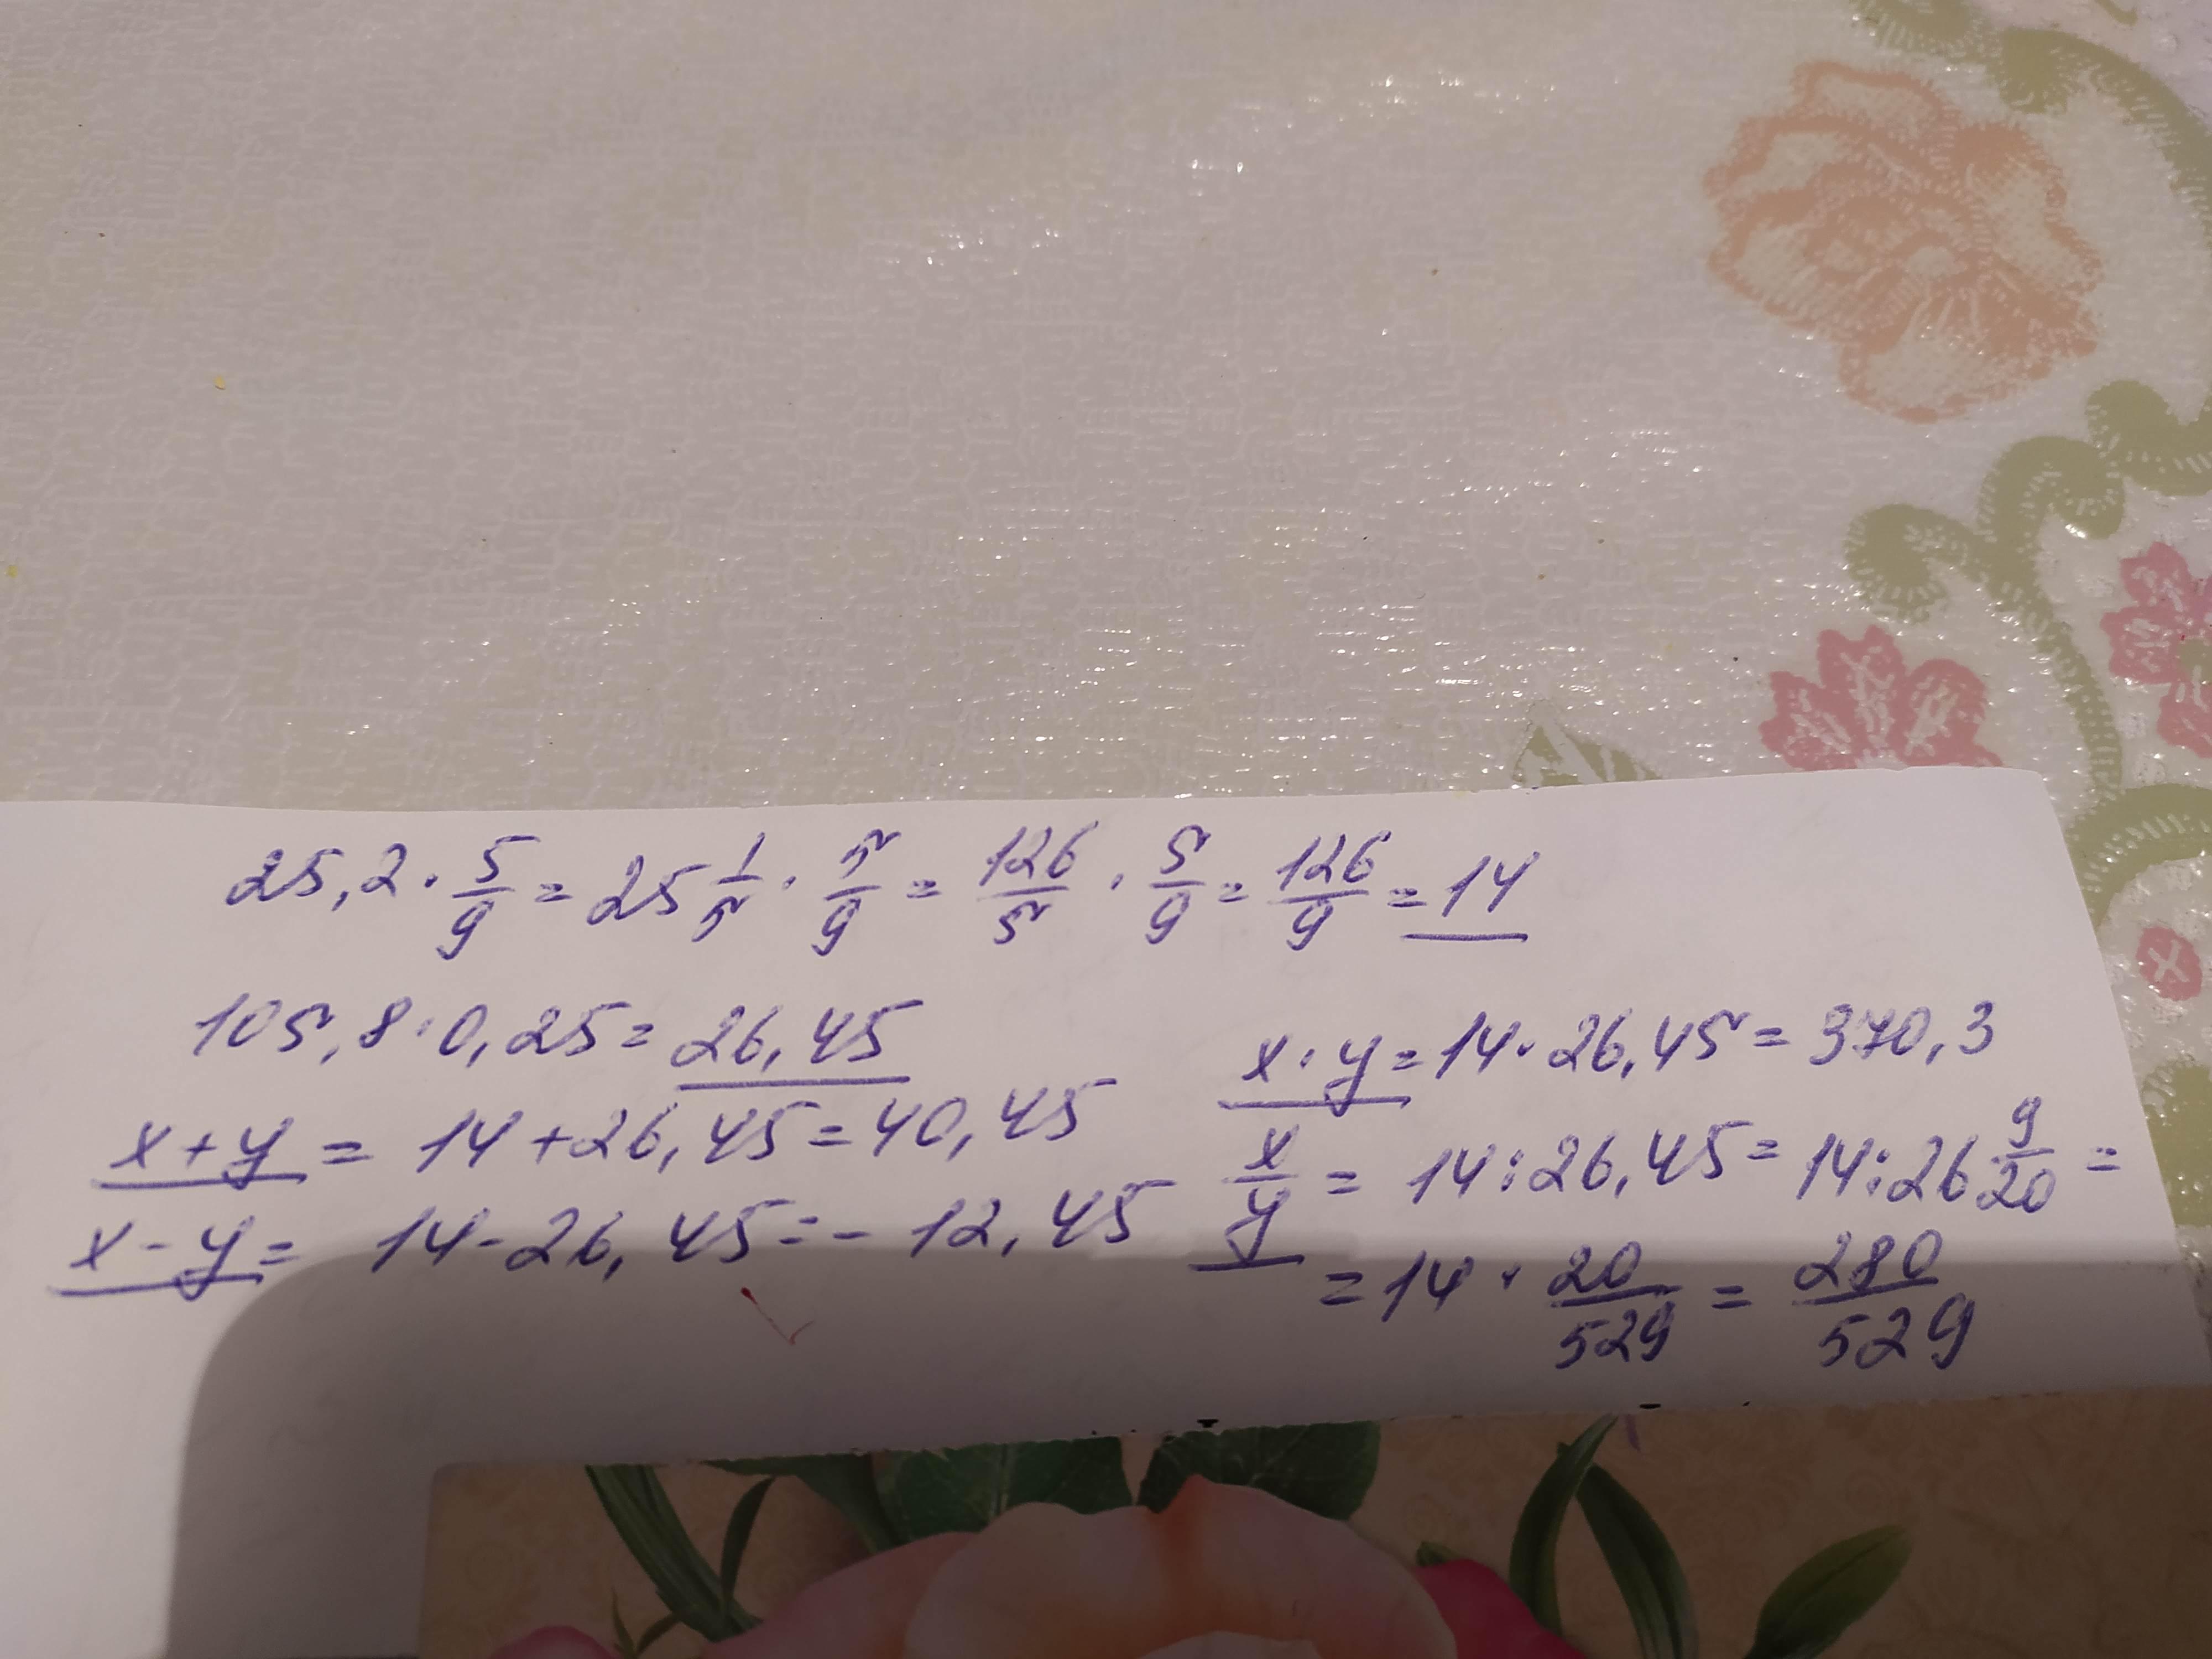 25,2 · 5/9 = 25 1/5 · 5/9 = 126/5 · 5/9 = 126/9 = 14
105,8 · 0,25 = 26,45
x + y = 14 + 26,45 = 40,45
x - y = 14 - 26,45 = - 12,45
x · y = 14 · 26,45 = 370,3
x/y = 14 : 26,45 = 14 : 26 9/20 =
= 14 · 20/529 = 280/529